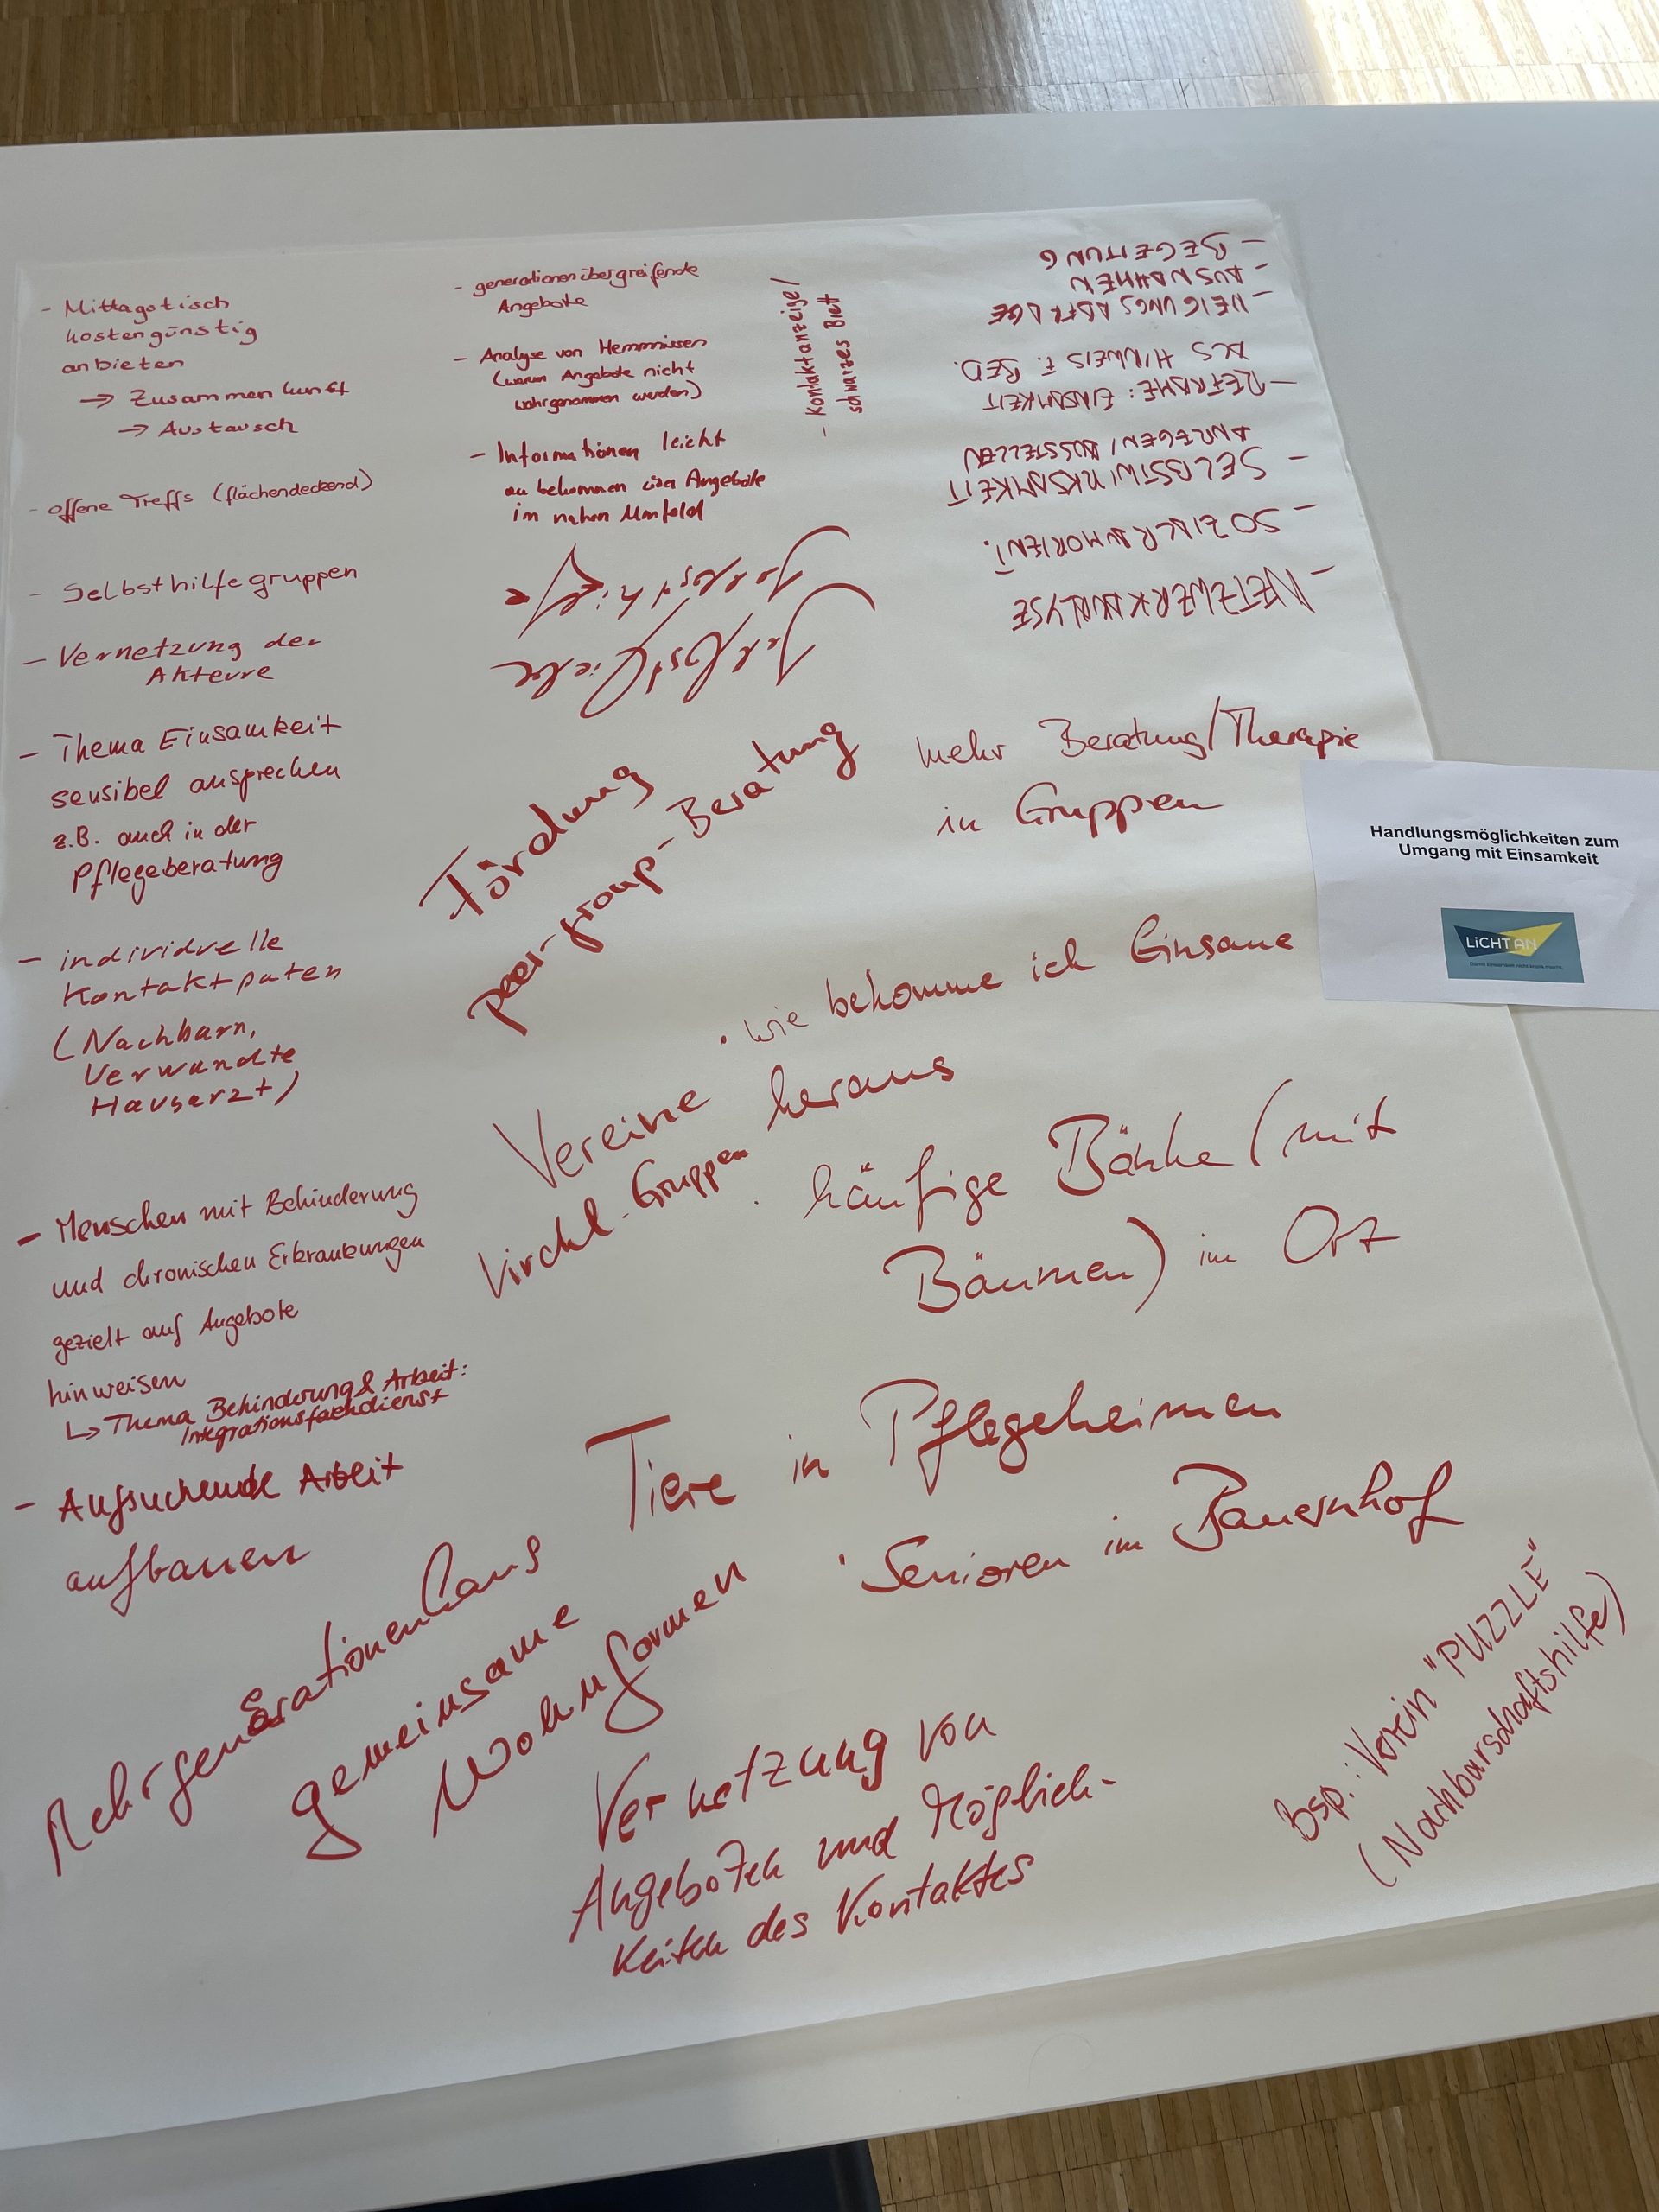 - Mittagstisch
kostengünstig
anbieten
→ Zusammenkunft
→ Austausch
- offene Treffs (flächendeckend)
- Selbsthilfegruppen
- Vernetzung der
Akteure
- Thema Einsamkeit
sensibel ansprechen
z.B. auch in der
Pflegeberatung
- individuelle
Kontaktpaten
(Nachbarn,
Verwandte
Hausarzt)
- Menschen mit Behinderung
und chronischen Erkrankungen
gezielt auf Angebote
hinweisen
↳ Thema Behinderung & Arbeit:
Integrationsfachdienst
- Aufsuchende Arbeit
aufbauen
- generationenübergreifende
Angebote
- Analyse von Hemmnissen
(warum Angebote nicht
wahrgenommen werden)
- Informationen leicht
zu bekommen über Angebote
im nahen Umfeld
- Kontaktanzeige/
schwarzes Brett
NETZWERKANALYSE
- SOZIALRAUMORIENT.
- SELBSTWIRKSAMKEIT
ANREGEN/
- REFRAME: EINSAMKEIT
ALS HINWEIS F. BED.
- NEIGUNGSABFRAGE
- AUSNAHMEN
- BEGEITUNG
Selbstliebe
Förderung
peer-group-Beratung
mehr Beratung/Therapie
in Gruppen
Handlungsmöglichkeiten zum
Umgang mit Einsamkeit
LiCHT AN
• wie bekomme ich Einsame
heraus
Vereine
kirchl. Gruppen
• häufige Bänke (mit
Bäumen) im Ort
Tiere in Pflegeheimen
• Senioren im Bauernhof
Mehrgenerationenhaus
gemeinsame
Wohnformen
Vernetzung von
Angeboten und Möglich-
keiten des Kontaktes
Bsp.: Verein "PUZZLE"
(Nachbarschaftshilfe)